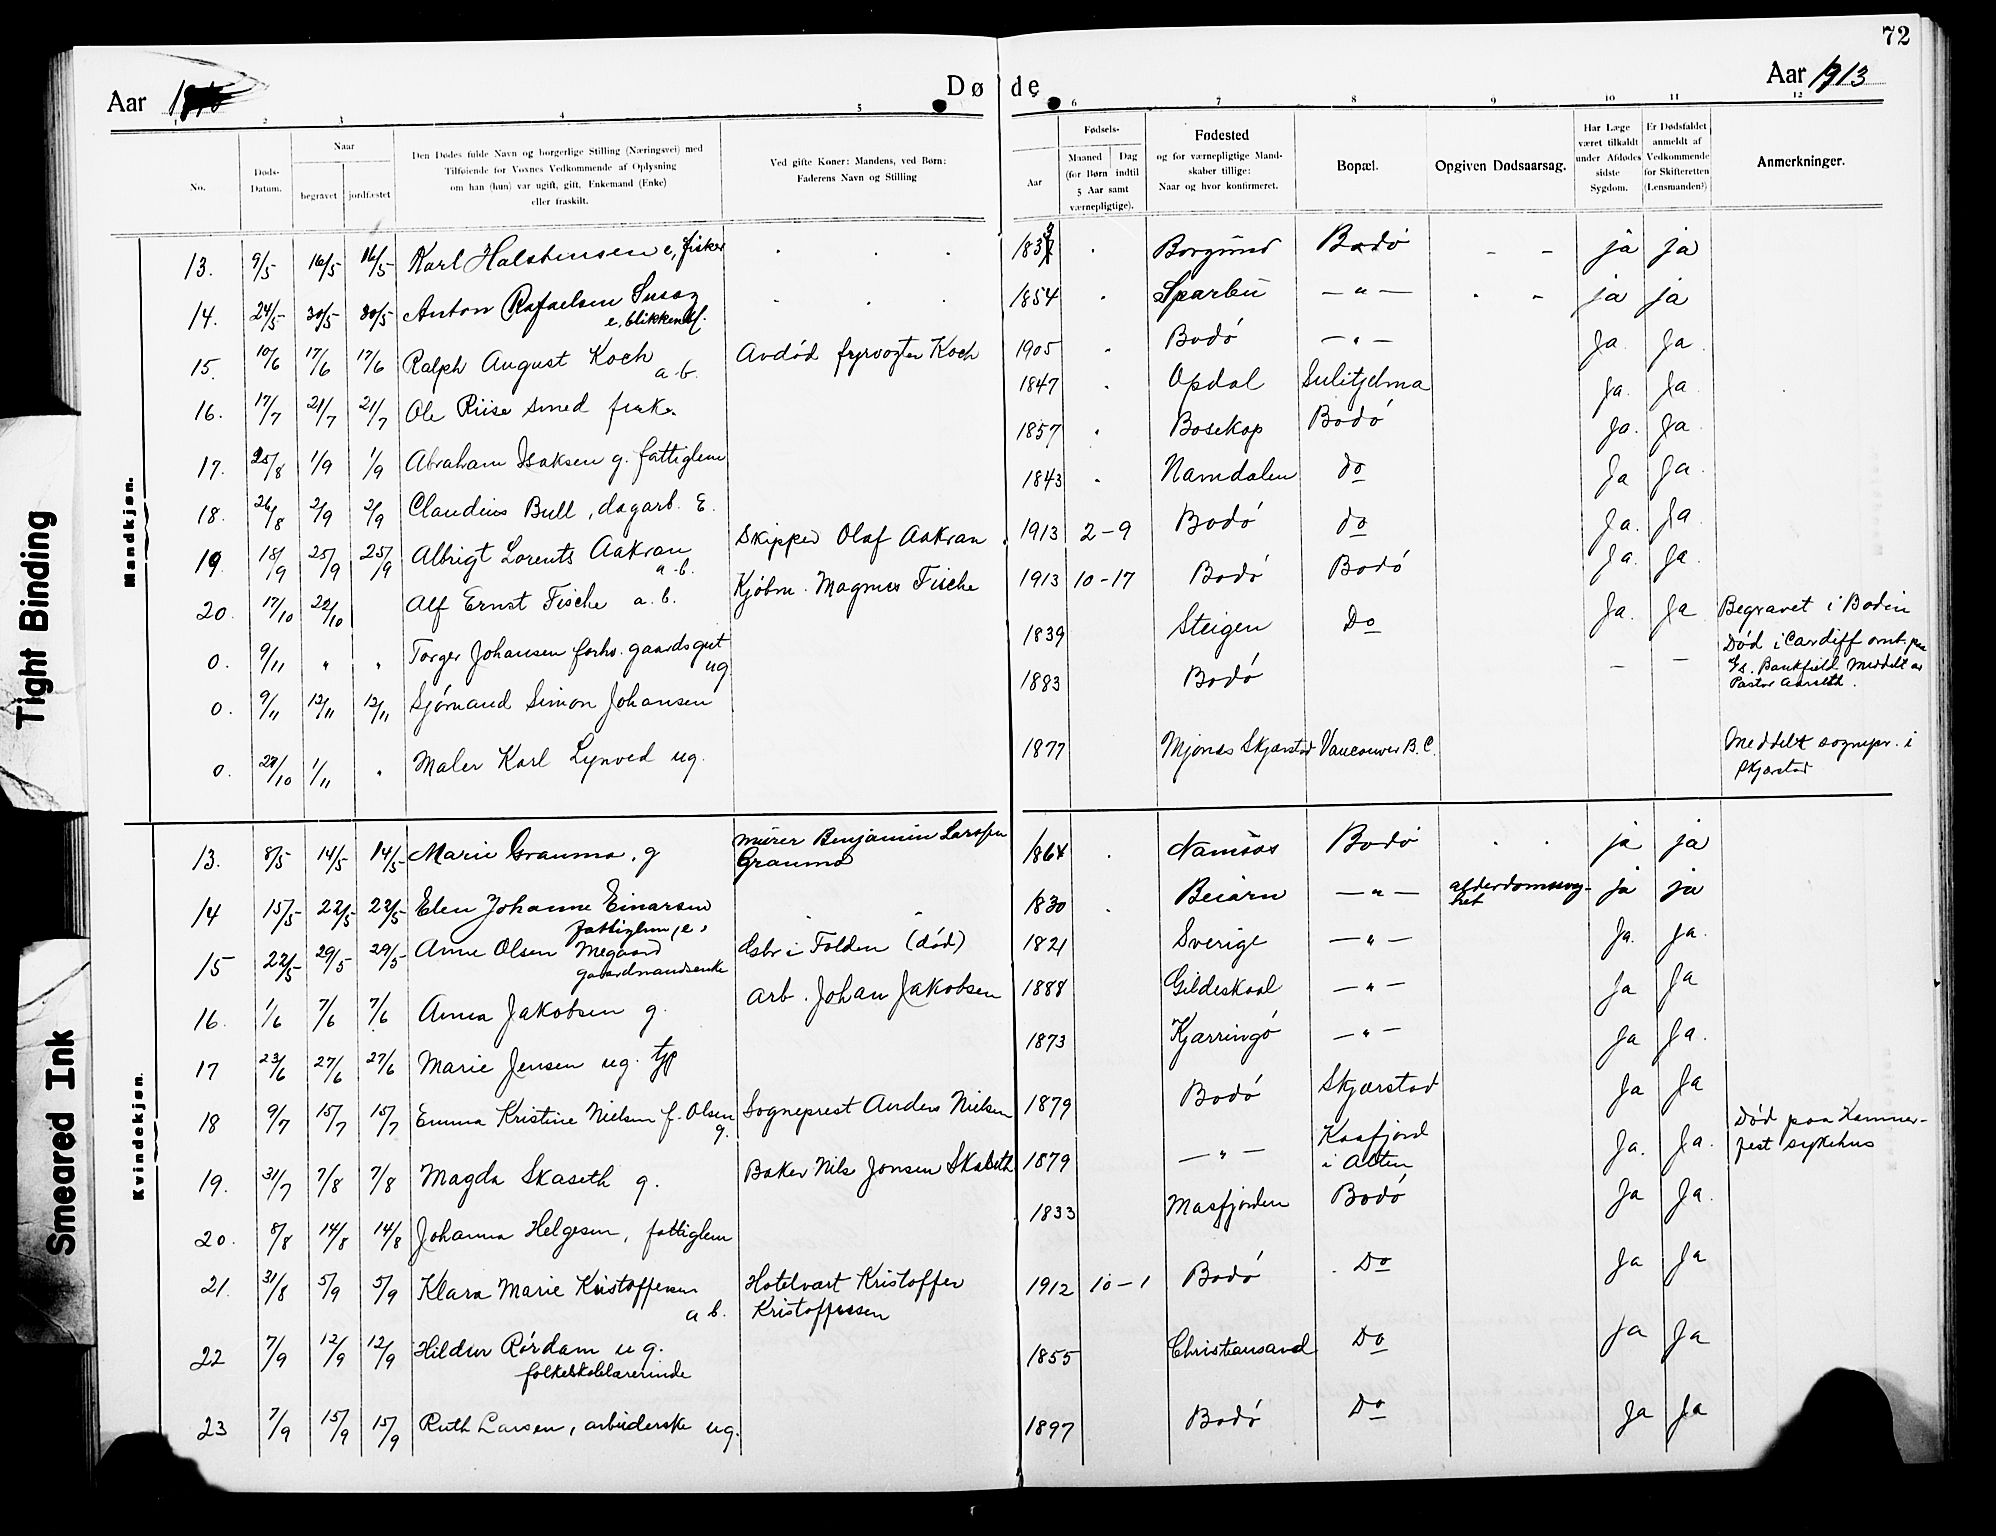 72
Aar 19
Dø de
Aar 1913
1 2 3 4 5 6 7 8 9 10 11 12
No.
Døds-
Datum.
Naar
begravet jordfæstet
Den Dødes fulde Navn og borgerlige Stilling (Næringsvei) med
Tilføiende for Voxnes Vedkommende af Oplysning
om han (hun) var ugift, gift, Enkemand (Enke)
eller fraskilt.
Ved gifte Koner: Mandens, ved Børn:
Faderens Navn og Stilling
Aar
Fødsels-
Maaned Dag
(for Børn indtil
5 Aar samt
værnepligtige).
Fødested
og for værnepligtige Mand-
skaber tillige:
Naar og hvor konfirmeret.
Bopæl.
Opgiven Dødsaarsag.
Har Læge
været tilkaldt
under Afdødes
sidste
Sygdom.
Er Dødsfaldet
anmeldt af
Vedkommende
for Skifteretten
(Lensmanden?)
Anmerkninger.
Mandkjøn.
13. 9/5 16/5 16/5 Karl Halstensen e, fisker 183 Borgund Bodö - - ja ja
14. 24/5 30/5 30/5 Anton Rafaelsen Susag 1854 Sparbu — " — ja ja
e, blikkensl.
15. 10/6 17/6 17/6 Ralph August Koch Avdöd fyrvogter Koch 1905 Bodö — " — Ja Ja
a.b.
16. 17/7 21/7 21/7 Ole Riise smed 1847 Opdal Sulitjelma Ja. Ja
17. 25/8 1/9 1/9 Abraham Isaksen g. fattiglem 1857 Bosekop Bodö Ja. Ja
18. 26/8 2/9 2/9 Claudius Bull, dagarb. E. 1843 Namdalen do Ja Ja.
19. 18/9 25/9 25/9 Albrigt Lorents Aakran Skipper Olaf Aakran 1913 2-9 Bodö do Ja. Ja
a.b.
20. 17/10 22/10 Alf Ernst Fische a.b. Kjöbm. Magnus Fische 1913 10-17 Bodö Bodö Ja. Ja.
0. 9/11 " " Torger Johansen forhv. gaardsgut 1839 Steigen Do Ja. Ja Begravet i Bodin
ug
0. 9/11 12/11 12/11 Sjömand Simon Johansen 1883 Bodö — — Död i Cardiff omb. paa
S/S. Bankfield Meddelt av
Pastor Aarseth.
0. 28/10 1/11 " Maler Karl Lynved ug. 1877 Mjönes Skjærstad Vancouver B.C. Meddelt sognepr. i
Skjærstad
Kvindekjøn.
13. 8/5 14/5 14/5 Marie Graumo, g Murer Benjamin Larssen 1864 Namsos Bodö ja ja
Graumo
14 15/5 22/5 22/5 Elen Johanne Einarsen 1830 Beiarn — " — alderdomssvag- ja ja
fattiglem, e. het
15 22/5 29/5 29/5 Anne Olsen Megaard Gsbr i Folden (död) 1821 Sverige — " — Ja. Ja.
gaardmandsenke
16. 1/6 7/6 7/6 Anna Jakobsen g. Arb. Johan Jakobsen 1888 Gildeskaal — " — Ja Ja
17 23/6 27/6 27/6 Marie Jensen ug. tjp 1873 Kjærringö — " — Ja Ja.
18 9/7 15/7 15/7 Emma Kristine Nielsen f. Olsen Sogneprest Anders Nielsen 1879 Bodö Skjærstad Ja Ja
g.
19. 31/7 7/8 7/8 Magda Skaseth g. Baker Nils Jonsen Skaseth 1879 — " — Kaafjord Ja. Ja. Död paa Hammer-
i Alten fest sykehus
20. 8/8 14/8 14/8 Johanna Helgesen, fattiglem 1833 Masfjorden Bodö Ja Ja.
21. 31/8 5/9 5/9 Klara Marie Kristoffersen Hotelvært Kristoffer 1912 10-1 Bodö Do Ja Ja
a b. Kristoffersen
22 7/9 12/9 12/9 Hildur Rördam ug. 1855 Christiansand Do Ja Ja
folkeskolelærerinde
23 7/9 15/9 15/9 Ruth Larsen, arbeiderske ug. 1897 Bodö Do Ja Ja
Tight Binding
Smeared Ink